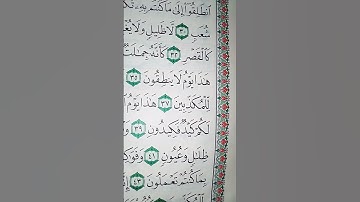 ٱنطَلِقُوٓا۟ إِلَىٰ مَا كُنتُم بِهِۦ
شُعَبٍ ٣٠ لَّا ظَلِيلٍ وَلَا
كَٱلْقَصْرِ ٣٢ كَأَنَّهُۥ جِمَٰلَتٌ
هَٰذَا يَوْمُ لَا يَنطِقُونَ ٣٥
لِّلْمُكَذِّبِينَ ٣٧ هَٰذَا يَوْمُ
لَكُمْ كَيْدٌ فَكِيدُونِ ٣٩
ظِلَٰلٍ وَعُيُونٍ ٤١ وَفَوَٰكِهَ
بِمَا كُنتُمْ تَعْمَلُونَ ٤٣